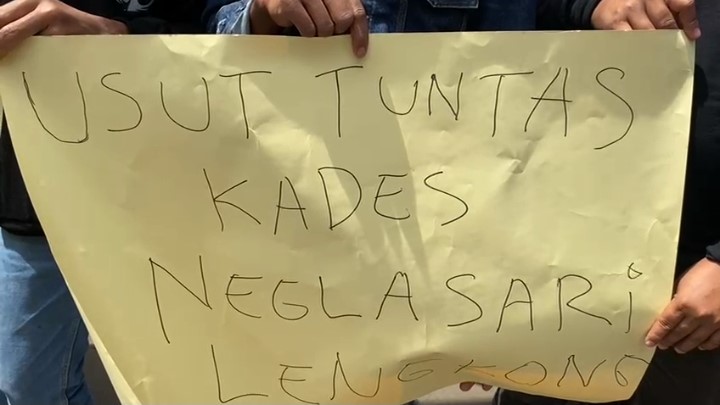 USUT TUNTAS
KADES
NEGLASARi
LENGKONG